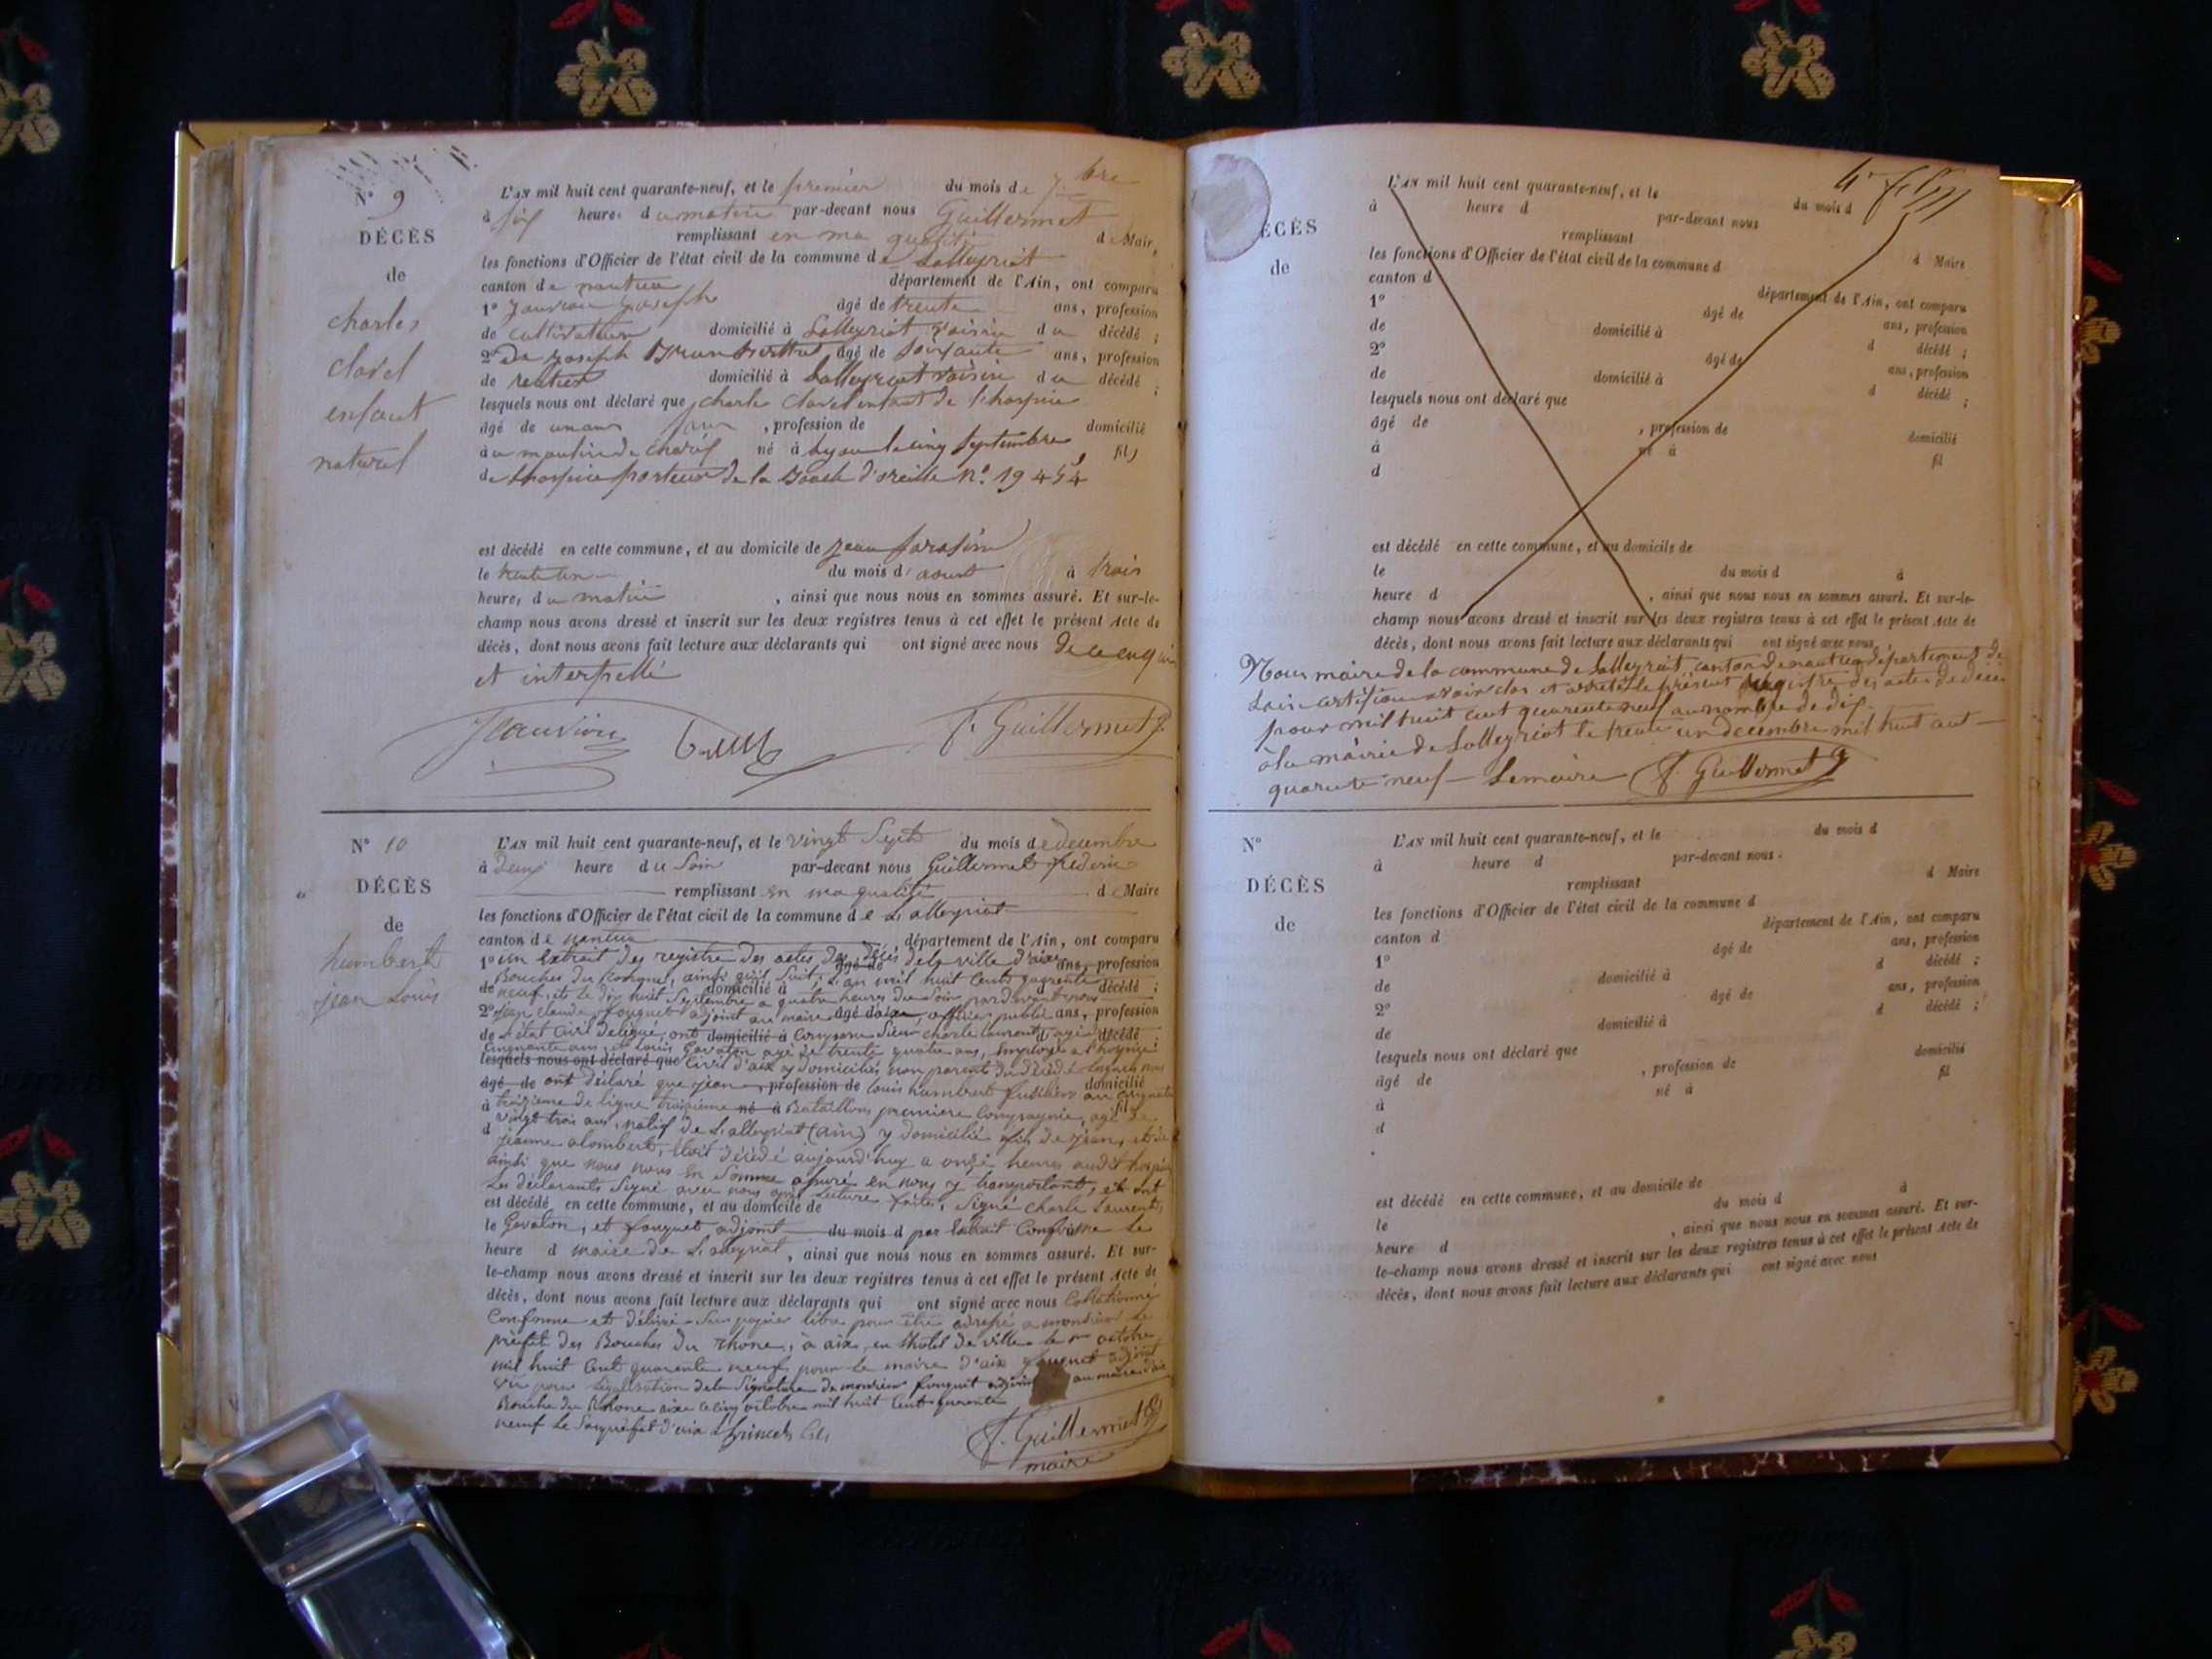 N° 9
DÉCÈS
de
charles
clavel
enfant
naturel
L'AN mil huit cent quarante-neuf, et le premier du mois de 7.bre
à six heures du matin par-devant nous Guillermet
remplissant en ma qualité de Maire,
les fonctions d'Officier de l'état civil de la commune de Lalleyriat
canton de nantua département de l'Ain, ont comparu
1° Jauvion joseph âgé de trente ans, profession
de cultivateur domicilié à Lalleyriat voisin du décédé ;
2° De joseph âgé de soixante ans, profession
de rentier domicilié à Lalleyriat voisin du décédé ;
lesquels nous ont déclaré que charle clavel enfant de l'hospice
âgé de un ans , profession de domicilié
à au moulin de charix né à Lyon le cinq septembre fils
de l'hospice porteur de la Boucle d'oreille N° 19454
est décédé en cette commune, et au domicile de jean
le trente un du mois d'aout à trois
heures du matin , ainsi que nous nous en sommes assuré. Et sur-le-
champ nous avons dressé et inscrit sur les deux registres tenus à cet effet le présent Acte de
décès, dont nous avons fait lecture aux déclarants qui ont signé avec nous de ce enquis
et interpellé
Jauvion F. Guillermet
N° 10
DÉCÈS
de
humbert
jean Louis
L'AN mil huit cent quarante-neuf, et le vingt Sept du mois de decembre
à deux heure du Soir par-devant nous Guillermet frederic
remplissant en ma qualité de Maire
les fonctions d'Officier de l'état civil de la commune de Lalleyriat
canton de nantua , département de l'Ain, ont comparu
1° un Extrait des registre des actes de décès de la ville d'aix âgé de ans, profession
Bouches du rhone, ainsi qu'il Suit, L'an mil huit Cents quarente
de neuf, et le dix huit Septembre a quatre heures du Soir pardevant nous domicilié à décédé ;
2° jean claude fouquet adjoint au maire d'aix, officier public âgé de ans, profession
de L'état Civil délégué, ont comparu Sieur charle Laurent agé de domicilié à décédé ;
Cinquante ans, et Louis Gavaton agé de trente quatre ans, Employé a l'hospice
lesquels nous ont déclaré que Civil d'aix y domiciliés non parents du décédé lesquels nous
âgé de ont déclaré que jean , profession de Louis humbert fusilier au cinquante domicilié
à troisieme de ligne troisieme né à Bataillon premiere Compagnie, agé de fil
d vingt trois ans, natif de Lalleyriat (ain) y domicilié fils de jean, et de
jeanne alombert, Etoit décédé aujourd'huy a onze heures audit hospice
ainsi que nous nous En Somme assuré en nous y transportant, et ont
Les déclarants Signé avec nous après Lecture faite, Signé charle Laurent,
est décédé en cette commune, et au domicile de
le Gavaton, et fouquet adjoint du mois d par Extrait Conforme Le
heure d maire de Lalleyriat , ainsi que nous nous en sommes assuré. Et sur-
le-champ nous avons dressé et inscrit sur les deux registres tenus à cet effet le présent Acte de
décès, dont nous avons fait lecture aux déclarants qui ont signé avec nous Collationné
Conforme et délivré Sur papier libre pour être adressé a monsieur Le
préfet des Bouches du rhone, à aix, en l'hotel de ville le octobre
mil huit Cent quarente neuf pour le maire d'aix fouquet adjoint
vu pour Légalisation de la Signature de monsieur fouquet adjoint au maire d'aix
Bouche du Rhone aix le cinq octobre mil huit Cent quarente
neuf Le Souspréfet d'aix
F. Guillermet
maire
DÉCÈS
de
L'AN mil huit cent quarante-neuf, et le du mois d
à heure d par-devant nous
remplissant d Maire
les fonctions d'Officier de l'état civil de la commune d
canton d département de l'Ain, ont comparu
1° âgé de ans, profession
de domicilié à d décédé ;
2° âgé de ans, profession
de domicilié à d décédé ;
lesquels nous ont déclaré que
âgé de , profession de domicilié
à né à fil
d
est décédé en cette commune, et au domicile de
le du mois d à
heure d , ainsi que nous nous en sommes assuré. Et sur-le-
champ nous avons dressé et inscrit sur les deux registres tenus à cet effet le présent Acte de
décès, dont nous avons fait lecture aux déclarants qui ont signé avec nous
Nous maire de la commune de Lalleyriat canton de nantua département de
Lain certifions avoir clos et arreté le présent Registre des actes de décès
pour mil huit cent quarente neuf au nombre de dix.
à la mairie de Lalleyriat le trente un decembre mil huit cent
quarente neuf Le maire F. Guillermet
N°
DÉCÈS
de
L'AN mil huit cent quarante-neuf, et le du mois d
à heure d par-devant nous
remplissant d Maire
les fonctions d'Officier de l'état civil de la commune d
canton d département de l'Ain, ont comparu
1° âgé de ans, profession
de domicilié à d décédé ;
2° âgé de ans, profession
de domicilié à d décédé ;
lesquels nous ont déclaré que
âgé de , profession de domicilié
à né à fil
d
est décédé en cette commune, et au domicile de
le du mois d à
heure d , ainsi que nous nous en sommes assuré. Et sur-
le-champ nous avons dressé et inscrit sur les deux registres tenus à cet effet le présent Acte de
décès, dont nous avons fait lecture aux déclarants qui ont signé avec nous